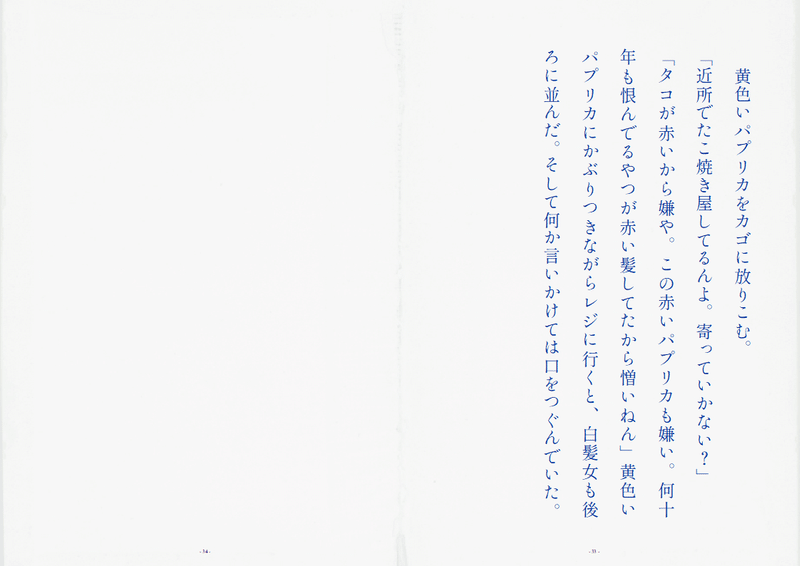 黄色いパプリカをカゴに放りこむ。
「近所でたこ焼き屋してるんよ。寄っていかない?」
「タコが赤いから嫌や。この赤いパプリカも嫌い。何十
年も恨んでるやつが赤い髪してたから憎いねん」黄色い
パプリカにかぶりつきながらレジに行くと、白髪女も後
ろに並んだ。そして何か言いかけては口をつぐんでいた。